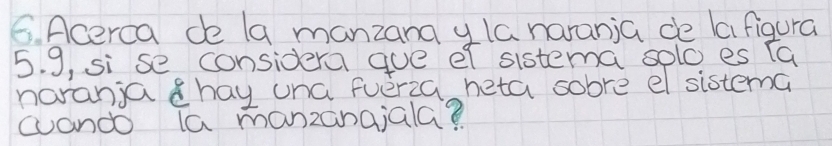 6. Acerca de la manzana y la naranja de la figura
5.9, si se considera que el sistema solo es la
naranja ¿hay una fuerza neta sobre el sistema
cuando la manzanajala?